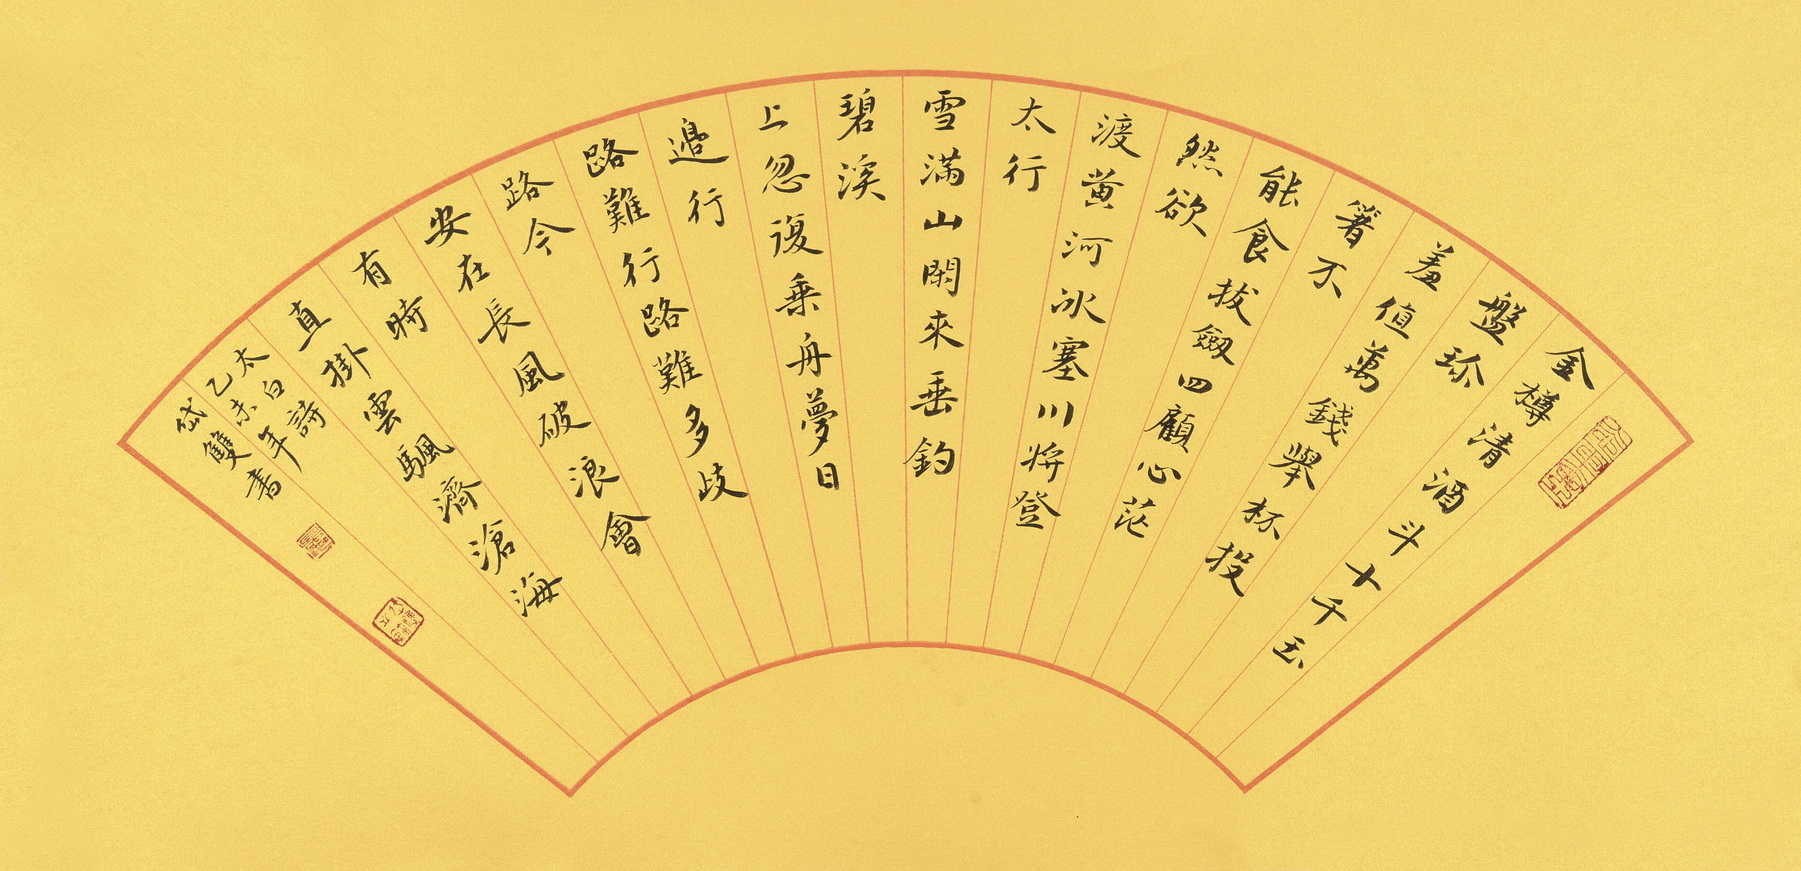 金樽清酒斗十千玉
盤珍
羞值萬錢舉杯投
箸不
能食拔劔四顧心茫
然欲
渡黄河冰塞川將登
太行
雪滿山閑來垂釣
碧溪
上忽復乘舟夢日
邊行
路難行路難多歧
路今
安在長風破浪會
有時
直掛雲颿濟滄海
太白詩
乙未年
岱雙書